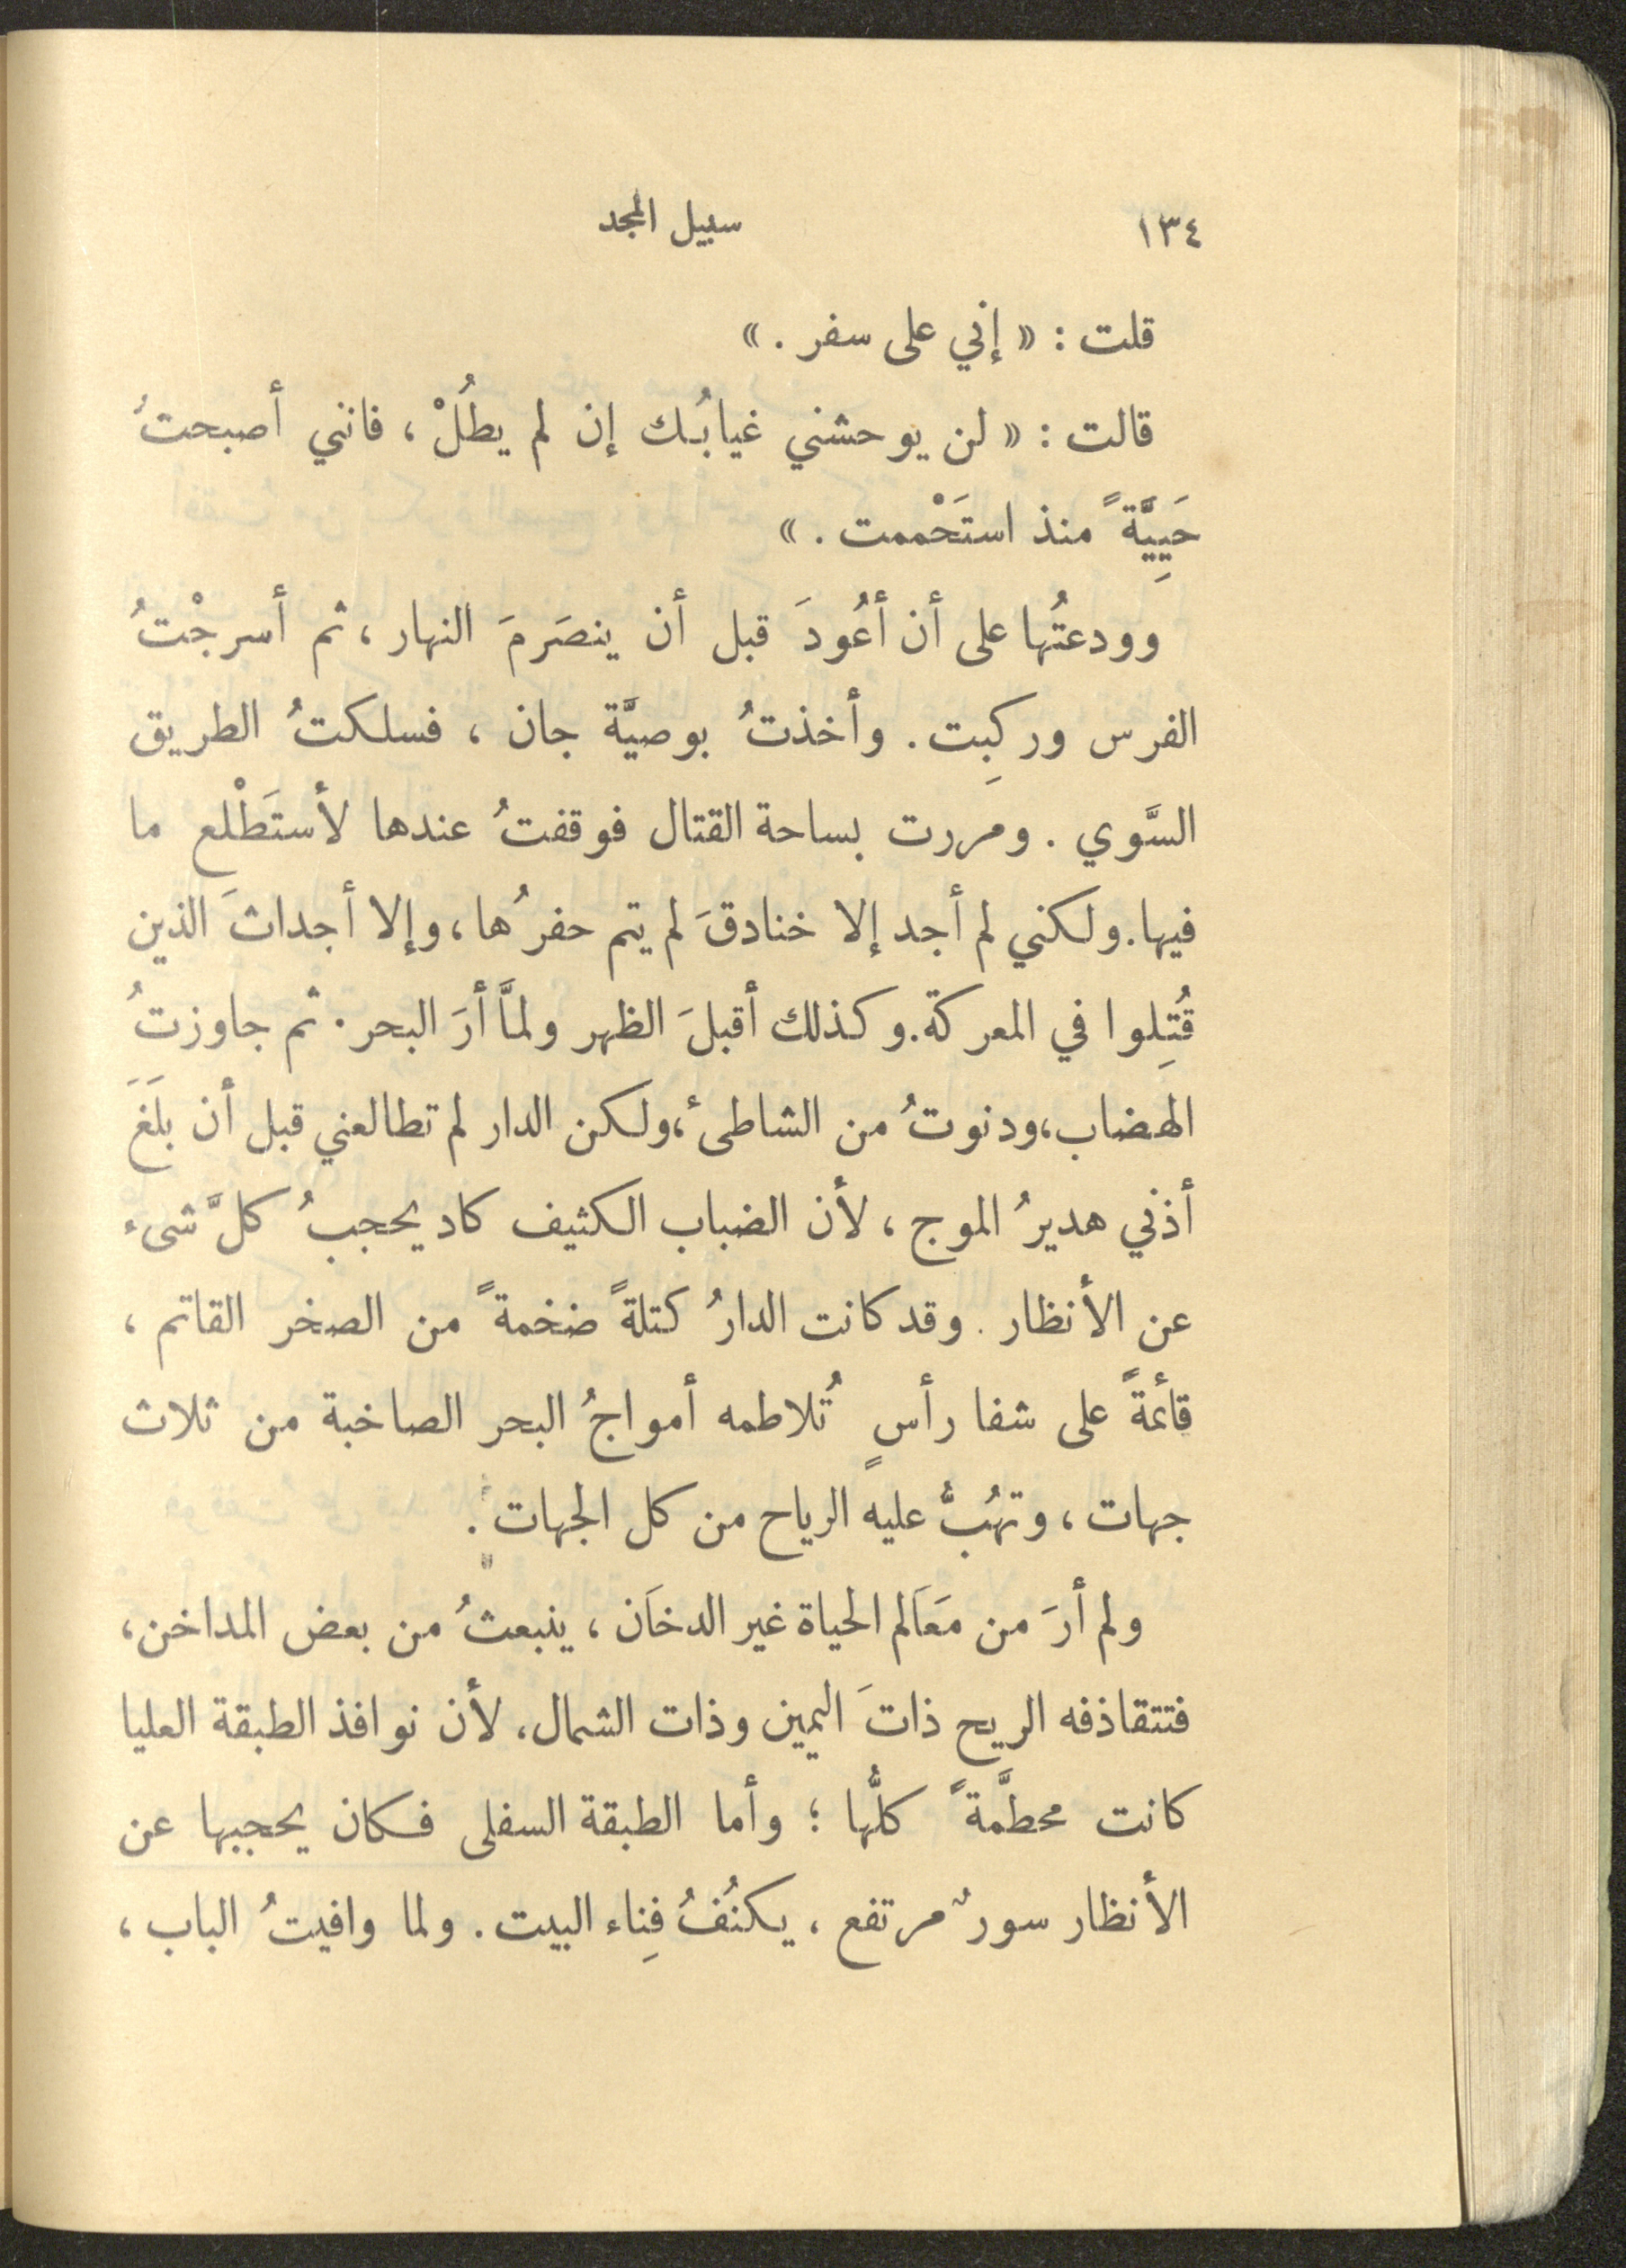 ١٣٤ سبيل المجد
قلت : « إني على سفر . »
قالت : « لن يوحشني غيابُك إن لم يطُلْ ، فانني أصبحتُ
حَيِيَّةً منذ استَحْممت . »
وودعتُها على أن أعُودَ قبل أن ينصَرمَ النهار ، ثم أسرجْتُ
الفرس وركِبت . وأخذتُ بوصيَّة جان ، فسلكتُ الطريق
السَّوي . ومررت بساحة القتال فوقفتُ عندها لأستَطْلع ما
فيها . ولكني لم أجد إلا خنادقَ لم يتم حفرُها ، وإلا أجداثَ الذين
قُتِلوا في المعركة . وكذلك أقبلَ الظهر ولمَّا أرَ البحر . ثم جاوزتُ
الهضاب ، ودنوتُ من الشاطىء ، ولكن الدار لم تطالعني قبل أن بلَغَ
أذني هديرُ الموج ، لأن الضباب الكثيف كاد يحجبُ كلَّ شىء
عن الأنظار . وقد كانت الدارُ كتلةً ضخمةً من الصخر القاتم ،
قائمةً على شفا رأسٍ تُلاطمه أمواجُ البحر الصاخبة من ثلاث
جهات ، وتهُبُّ عليه الرياح من كل الجهات .
ولم أرَ من مَعَالم الحياة غير الدخَان ، ينبعثُ من بعض المداخن ،
فتتقاذفه الريح ذاتَ اليمين وذات الشمال ، لأن نوافذ الطبقة العليا
كانت محطَّمةً كلُّها ؛ وأما الطبقة السفلى فكان يحجبها عن
الأنظار سورٌ مرتفع ، يكنُفُ فِناء البيت . ولما وافيتُ الباب ،